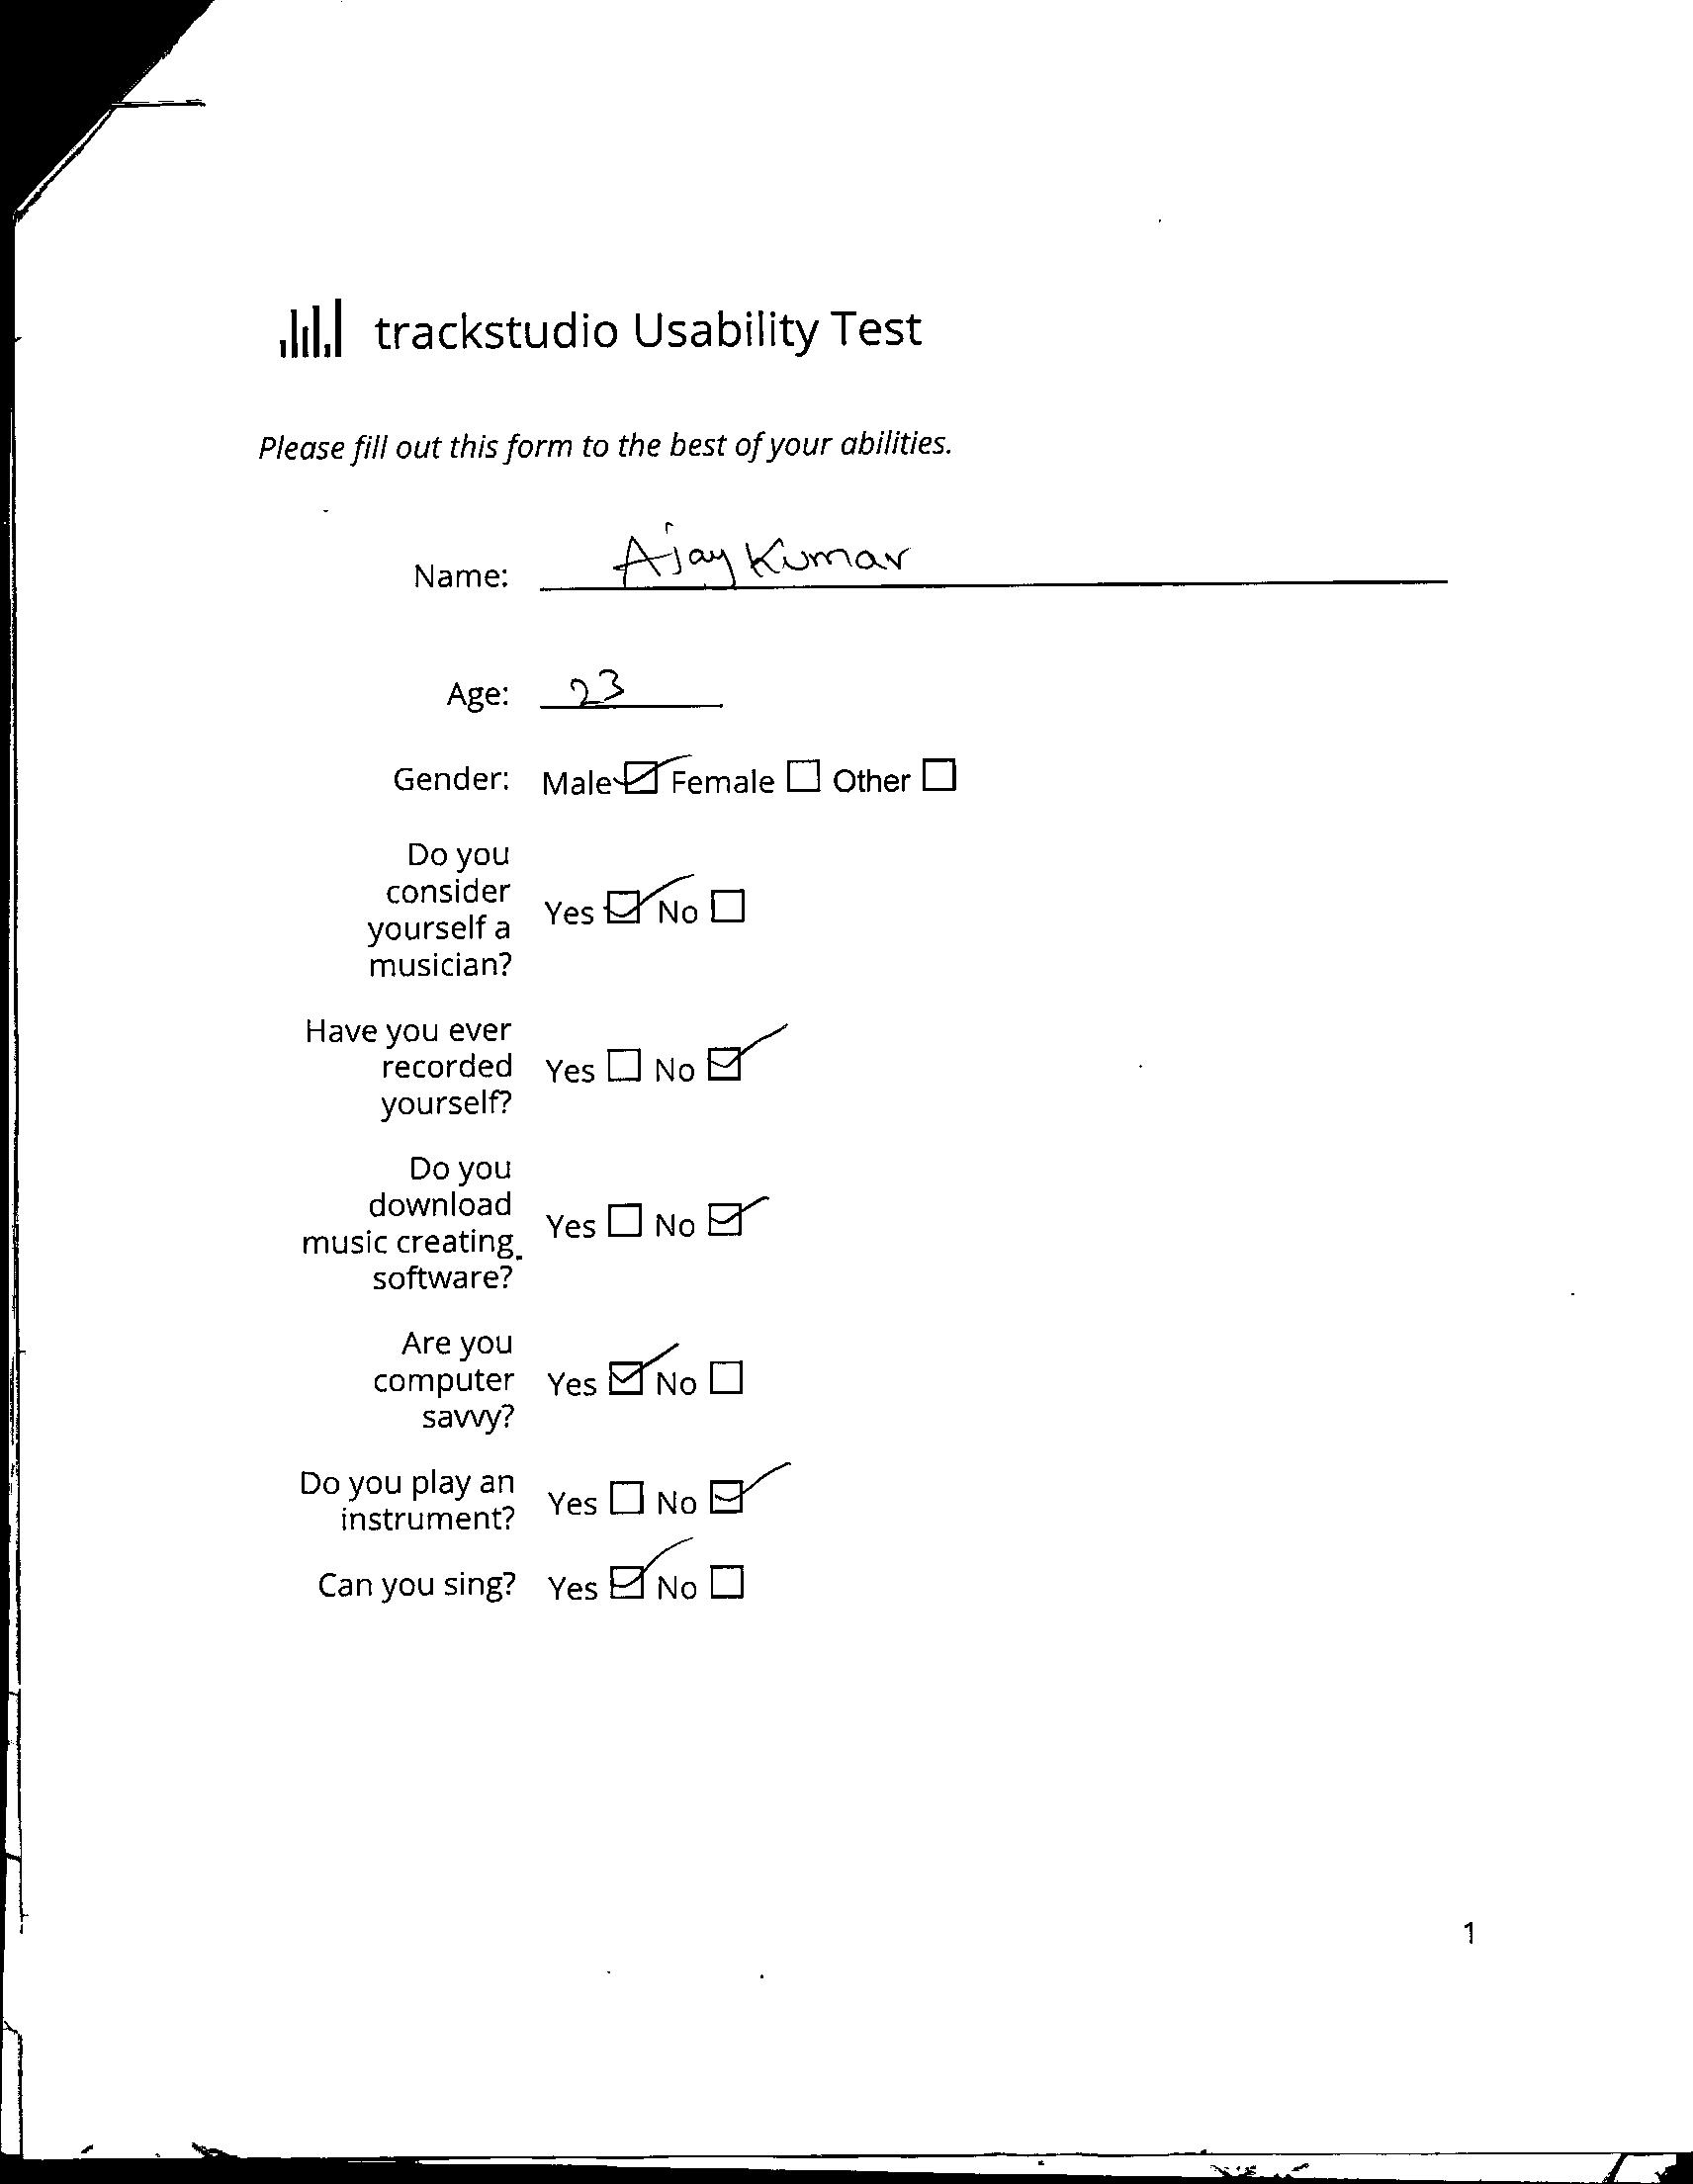 trackstudio Usability Test
Please fill out this form to the best of your abilities.
Name: Ajay Kumar
Age: 23
Gender: Male ☑ Female ☐ Other ☐
Do you
consider
yourself a
musician?
Yes ☑ No ☐
Have you ever
recorded
yourself?
Yes ☐ No ☑
Do you
download
music creating
software?
Yes ☐ No ☑
Are you
computer
savvy?
Yes ☑ No ☐
Do you play an
instrument?
Yes ☐ No ☑
Can you sing? Yes ☑ No ☐
1